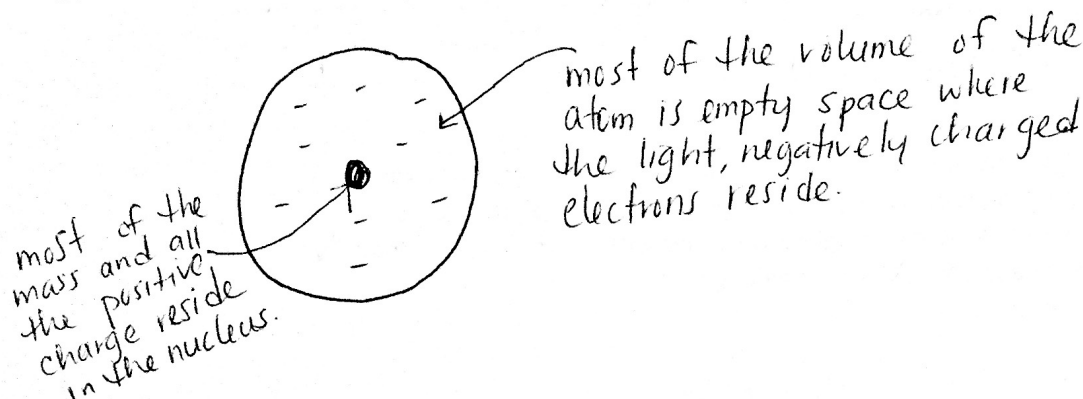 most of the volume of the
atom is empty space where
the light, negatively charged
electrons reside.
most of the
mass and all
the positive
charge reside
in the nucleus.